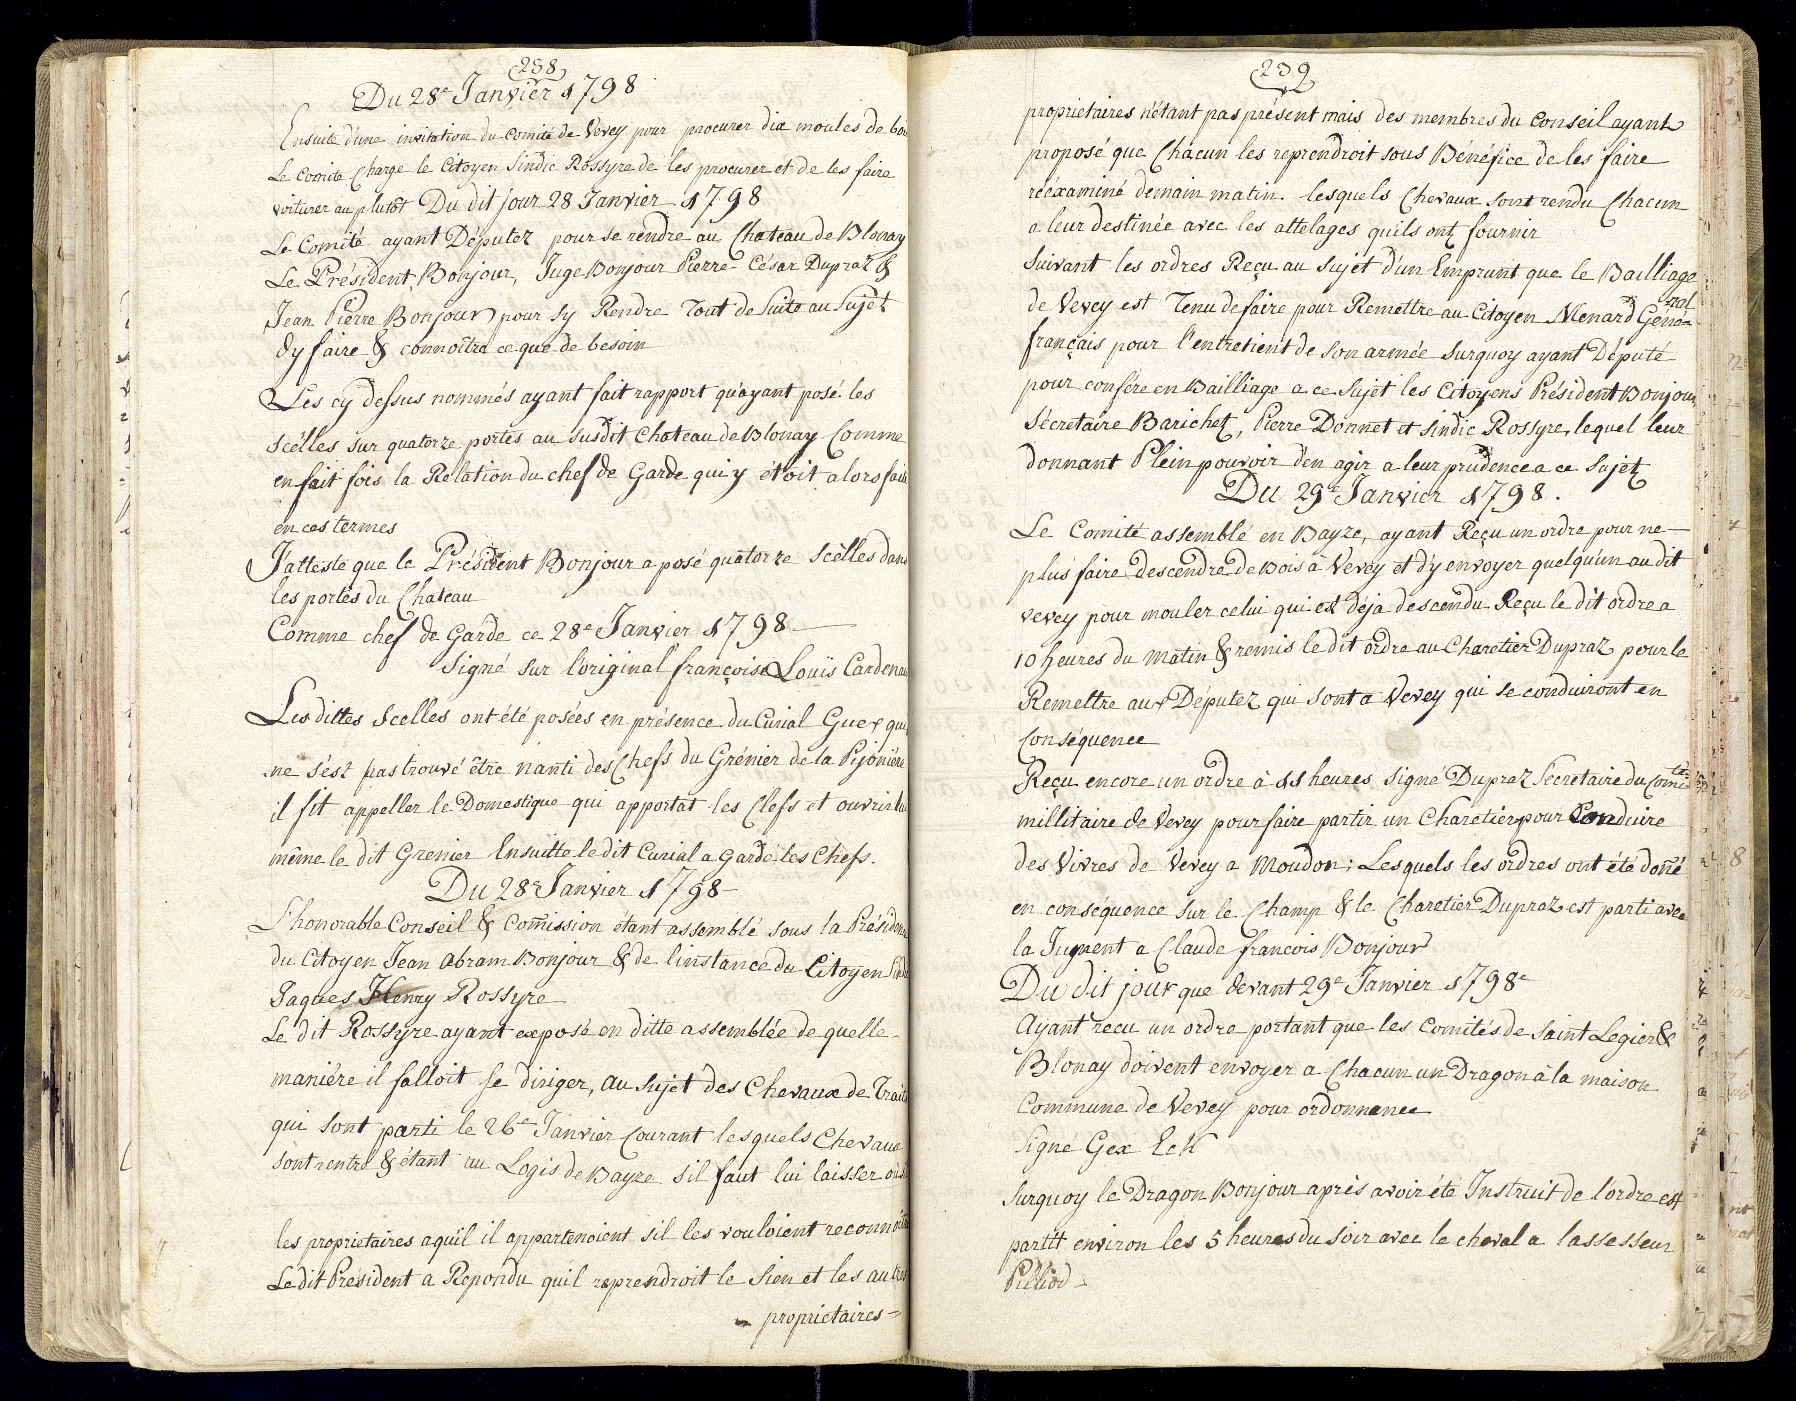 238
Du 28e Janvier 1798
Ensuite d'une invitation du Comité de Vevey pour procurer dix moules de bois
Le Comité Charge le Citoyen Sindic Rossyre de les procurer et de les faire
voiturer au plutôt Du dit jour 28 Janvier 1798
Le Comité ayant Députez pour se rendre au Chateau de Blonay
Le Président Bonjour, Juge Bonjour Pierre-César Dupraz &
Jean Pierre Bonjour pour sy Rendre Tout de Suite au Sujet
dy faire & connoître ce que de besoin
Les cy dessus nommés ayant fait rapport qu'ayant posé les
scélles sur quatorze portes au susdit Chateau de Blonay Comme
en fait fois la Relation du chef de Garde qui y étoit alors faite
en ces termes
J'atteste que le Président Bonjour a posé quatorze Scèlles dans
les portes du Chateau
Comme chef de Garde ce 28e Janvier 1798
Signé sur l'original françois Louis Cardenau
Les dittes Scelles ont été posées en présence du Curial Guex qui
ne s'est pas trouvé être nanti des Chefs du Grénier de la Pijonière
il fit appeller le Domestique qui apportat les Clefs et ouvrir lui
même le dit Grenier Ensuitte le dit Curial a Gardé les Chefs.
Du 28e Janvier 1798
L'honorable Conseil & Comission étant assemblé sous la Présidence
du Citoyen Jean Abram Bonjour & de l'instance du Citoyen Sindic
Jaques Henry Rossyre
Le dit Rossyre ayant exposé en ditte assemblée de quelle
maniére il falloit se diriger, au sujet des Chevaux de Traits
qui sont parti le 26e Janvier Courant lesquels Chevaux
sont rentré & étant au Logis de Bayze sil faut lui laisser où si
les proprietaires aquil il appartenoient sil les vouloient reconnoître
Le dit Président a Repondu quil reprendroit le Sien et les autres
proprietaires=
239
proprietaires n'étant pas présent mais des membres du Conseil ayant
proposé que Chacun les reprendroit sous Bénéfice de les faire
réexaminé demain matin. lesquels Chevaux sont rendu Chacun
a leur destinée avec les attelages quils ont fournir
Suivant les ordres Reçu au sujet d'un Emprunt que le Bailliage
de Vevey est Tenu de faire pour Remettre au Citoyen Menard Géné=ral
français pour l'entretient de son armée surquoy ayant Député
pour confére en Bailliage a ce sujet les Citoyens Président Bonjour
Sécretaire Barichet, Pierre Donnet et Sindic Rossyre, lequel leur
donnant Plein pouvoir d'en agir a leur prudence a ce sujet
Du 29e Janvier 1798.
Le Comité assemblé en Bayze, ayant Reçu un ordre pour ne
plus faire descendre de Bois à Vevey et d'y envoyer quelqu'un au dit
vevey pour mouler celui qui est déja descendu Reçu le dit ordre a
10 heures du Matin & remis le dit ordre au Charetier Dupraz pour le
Remettre aux Députez qui sont a Vevey qui se conduiront en
Conséquence
Reçu encore un ordre à 11 heures signé Dupraz Sécretaire du Comi=té
millitaire de Vevey pour faire partir un Charetier pour Conduire
des Vivres de Vevey a Moudon; Lesquels les ordres ont été doné
en conséquence sur le Champ & le Charetier Dupraz est parti avec
la Jument a Claude francois Bonjour
Du dit jour que devant 29e Janvier 1798e
Ayant recu un ordre portant que les Comités de Saint Legier &
Blonay doivent envoyer a Chacun un Dragon à la maison
Commune de Vevey pour ordonnance
Signé Gex
Surquoy le Dragon Bonjour après avoir été Instruit de l'ordre est
partit environ les 5 heures du Soir avec le cheval a lassesseur
Pilliod